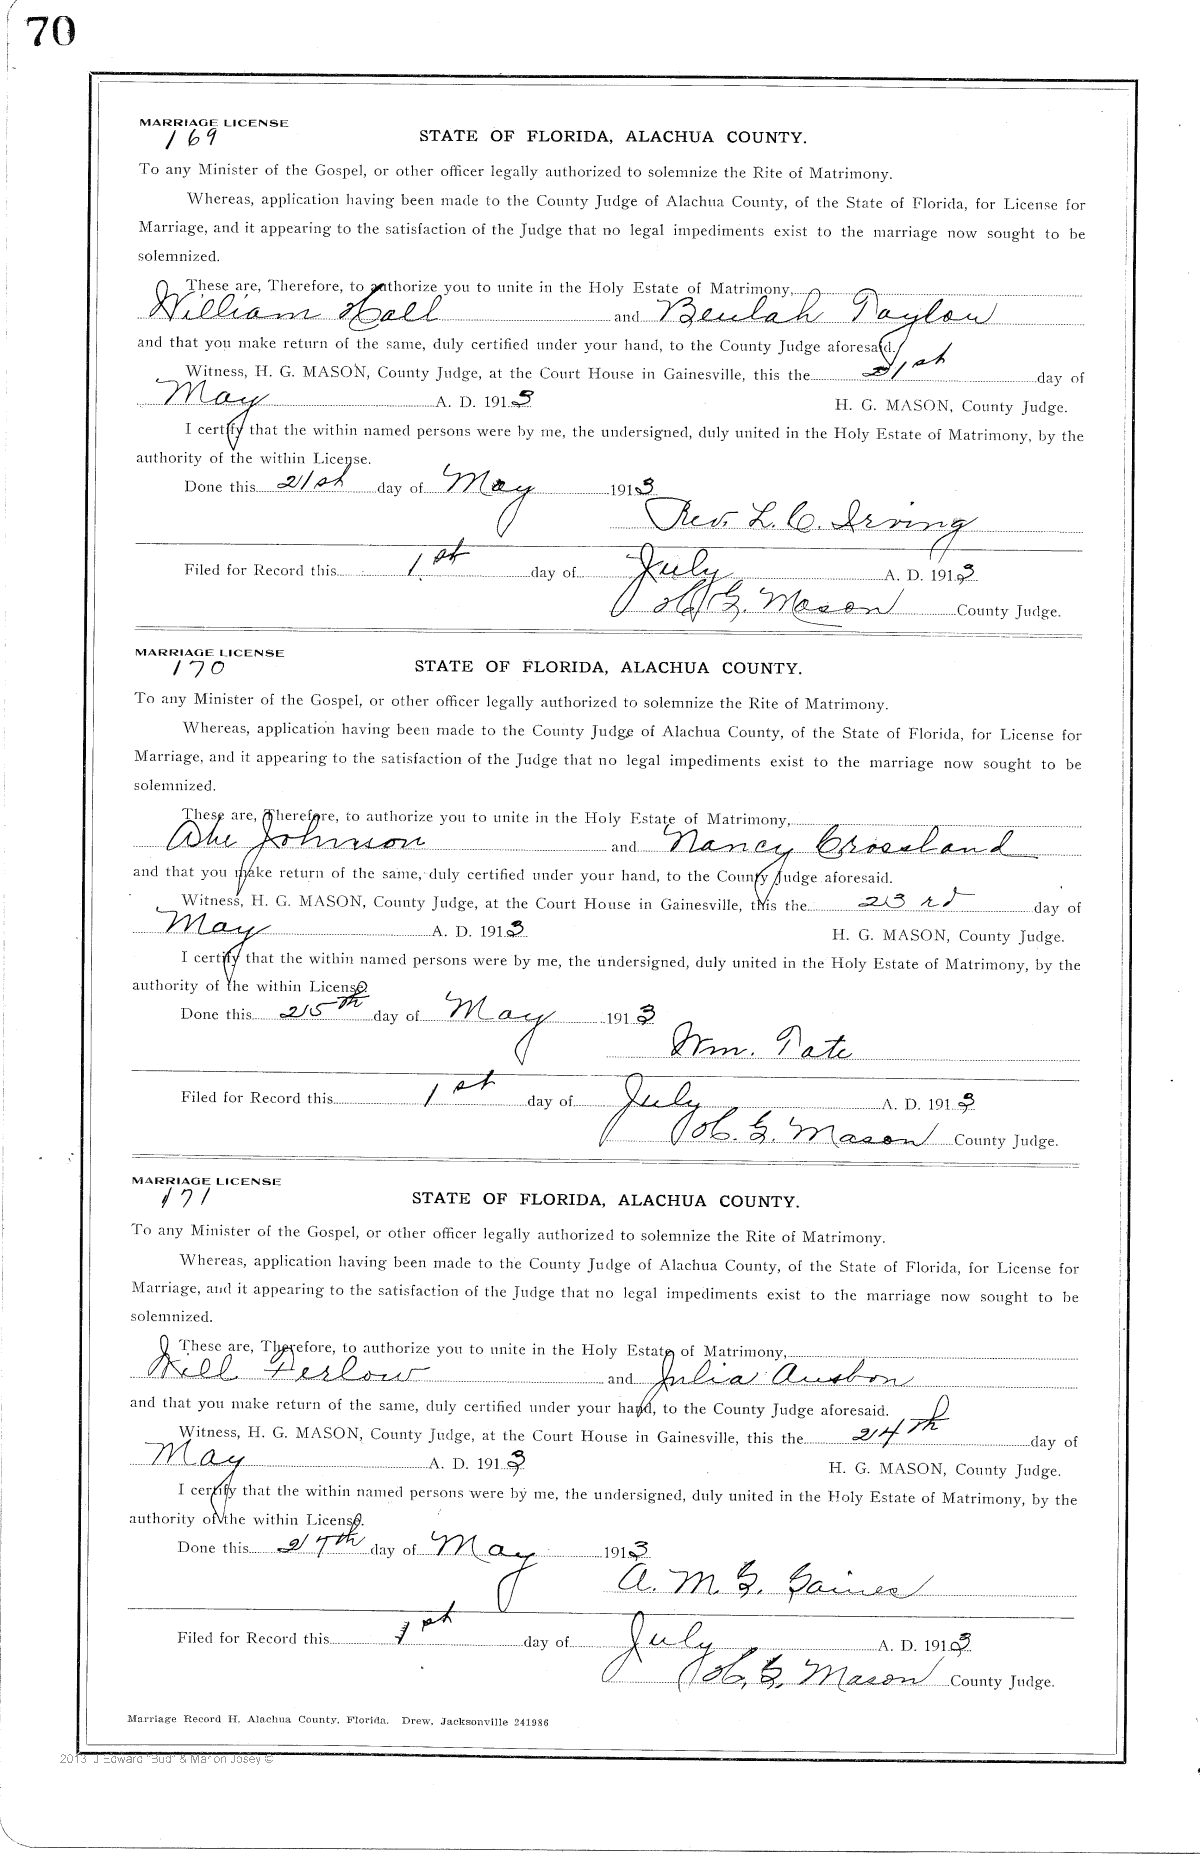 70
MARRIAGE LICENSE
169
STATE OF FLORIDA, ALACHUA COUNTY.
To any Minister of the Gospel, or other officer legally authorized to solemnize the Rite of Matrimony.
Whereas, application having been made to the County Judge of Alachua County, of the State of Florida, for License for
Marriage, and it appearing to the satisfaction of the Judge that no legal impediments exist to the marriage now sought to be
solemnized.
These are, Therefore, to authorize you to unite in the Holy Estate of Matrimony,
William Hall and Beulah Taylor
and that you make return of the same, duly certified under your hand, to the County Judge aforesaid.
Witness, H. G. MASON, County Judge, at the Court House in Gainesville, this the 21st day of
May A. D. 1913 H. G. MASON, County Judge.
I certify that the within named persons were by me, the undersigned, duly united in the Holy Estate of Matrimony, by the
authority of the within License.
Done this 21st day of May 1913
Rev. L. C. Irving
Filed for Record this 1st day of July A. D. 1913
H. G. Mason County Judge.
MARRIAGE LICENSE
170
STATE OF FLORIDA, ALACHUA COUNTY.
To any Minister of the Gospel, or other officer legally authorized to solemnize the Rite of Matrimony.
Whereas, application having been made to the County Judge of Alachua County, of the State of Florida, for License for
Marriage, and it appearing to the satisfaction of the Judge that no legal impediments exist to the marriage now sought to be
solemnized.
These are, Therefore, to authorize you to unite in the Holy Estate of Matrimony,
Abe Johnson and Nancy Crossland
and that you make return of the same, duly certified under your hand, to the County Judge aforesaid.
Witness, H. G. MASON, County Judge, at the Court House in Gainesville, this the 23rd day of
May A. D. 1913 H. G. MASON, County Judge.
I certify that the within named persons were by me, the undersigned, duly united in the Holy Estate of Matrimony, by the
authority of the within License.
Done this 25th day of May 1913
Wm. Tate
Filed for Record this 1st day of July A. D. 1913
H. G. Mason County Judge.
MARRIAGE LICENSE
171
STATE OF FLORIDA, ALACHUA COUNTY.
To any Minister of the Gospel, or other officer legally authorized to solemnize the Rite of Matrimony.
Whereas, application having been made to the County Judge of Alachua County, of the State of Florida, for License for
Marriage, and it appearing to the satisfaction of the Judge that no legal impediments exist to the marriage now sought to be
solemnized.
These are, Therefore, to authorize you to unite in the Holy Estate of Matrimony,
Will Ferlow and Julia Ausbon
and that you make return of the same, duly certified under your hand, to the County Judge aforesaid.
Witness, H. G. MASON, County Judge, at the Court House in Gainesville, this the 24th day of
May A. D. 1913 H. G. MASON, County Judge.
I certify that the within named persons were by me, the undersigned, duly united in the Holy Estate of Matrimony, by the
authority of the within License.
Done this 27th day of May 1913
A. M. G. Gaines
Filed for Record this 1st day of July A. D. 1913
H. G. Mason County Judge.
Marriage Record H, Alachua County, Florida. Drew, Jacksonville 241986
2013 J Edward "Bud" & Marion Josey ©